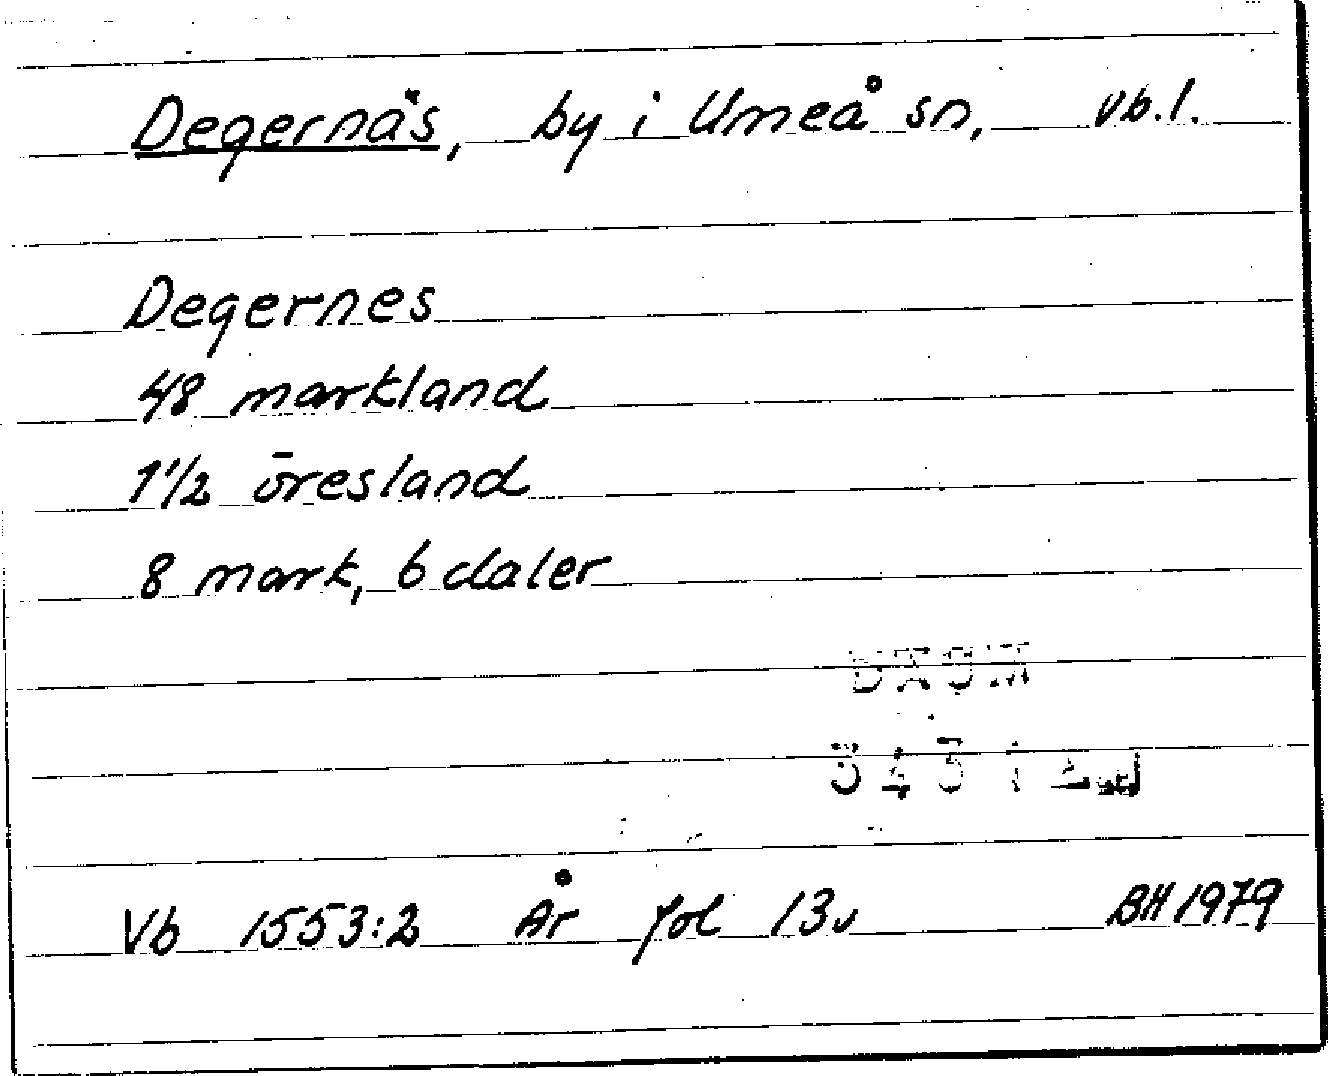 Degernäs, by i Umeå sn, vb.l.
Degernes
48 markland
1 1/2 öresland
8 mark, 6 daler
Vb 1553:2 År fol 13v BH 1979